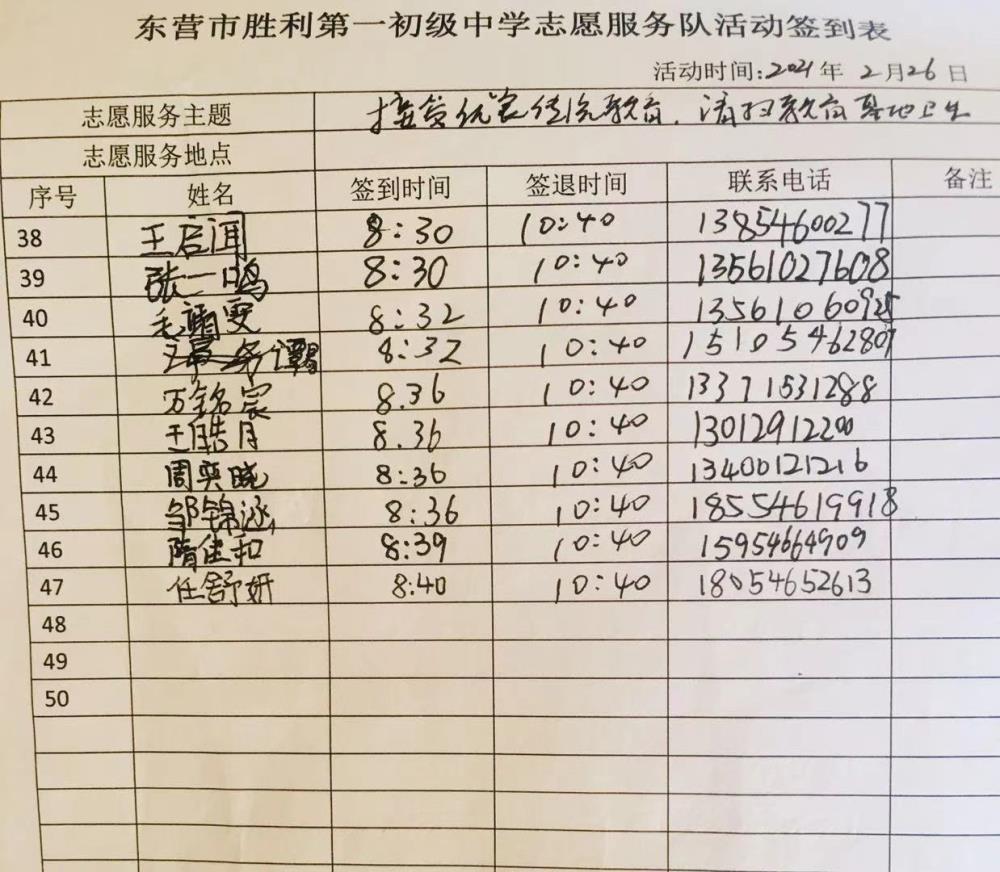 东营市胜利第一初级中学志愿服务队活动签到表
活动时间:2021年 2月26日
志愿服务主题 接受优良传统教育、清扫教育基地卫生
志愿服务地点
序号 姓名 签到时间 签退时间 联系电话 备注
38 王启洱 8:30 10:40 13854600277
39 张一鸣 8:30 10:40 13561027608
40 毛靖雯 8:32 10:40 13561060925
41 8:32 10:40 15105462807
42 万铭宸 8.36 10:40 13371531288
43 王皓月 8.36 10:40 13012912200
44 周奕晓 8:36 10:40 13400121216
45 邹锦涵 8:36 10:40 18554619918
46 隋佳和 8:39 10:40 15954664909
47 任舒妍 8:40 10:40 18054652613
48
49
50